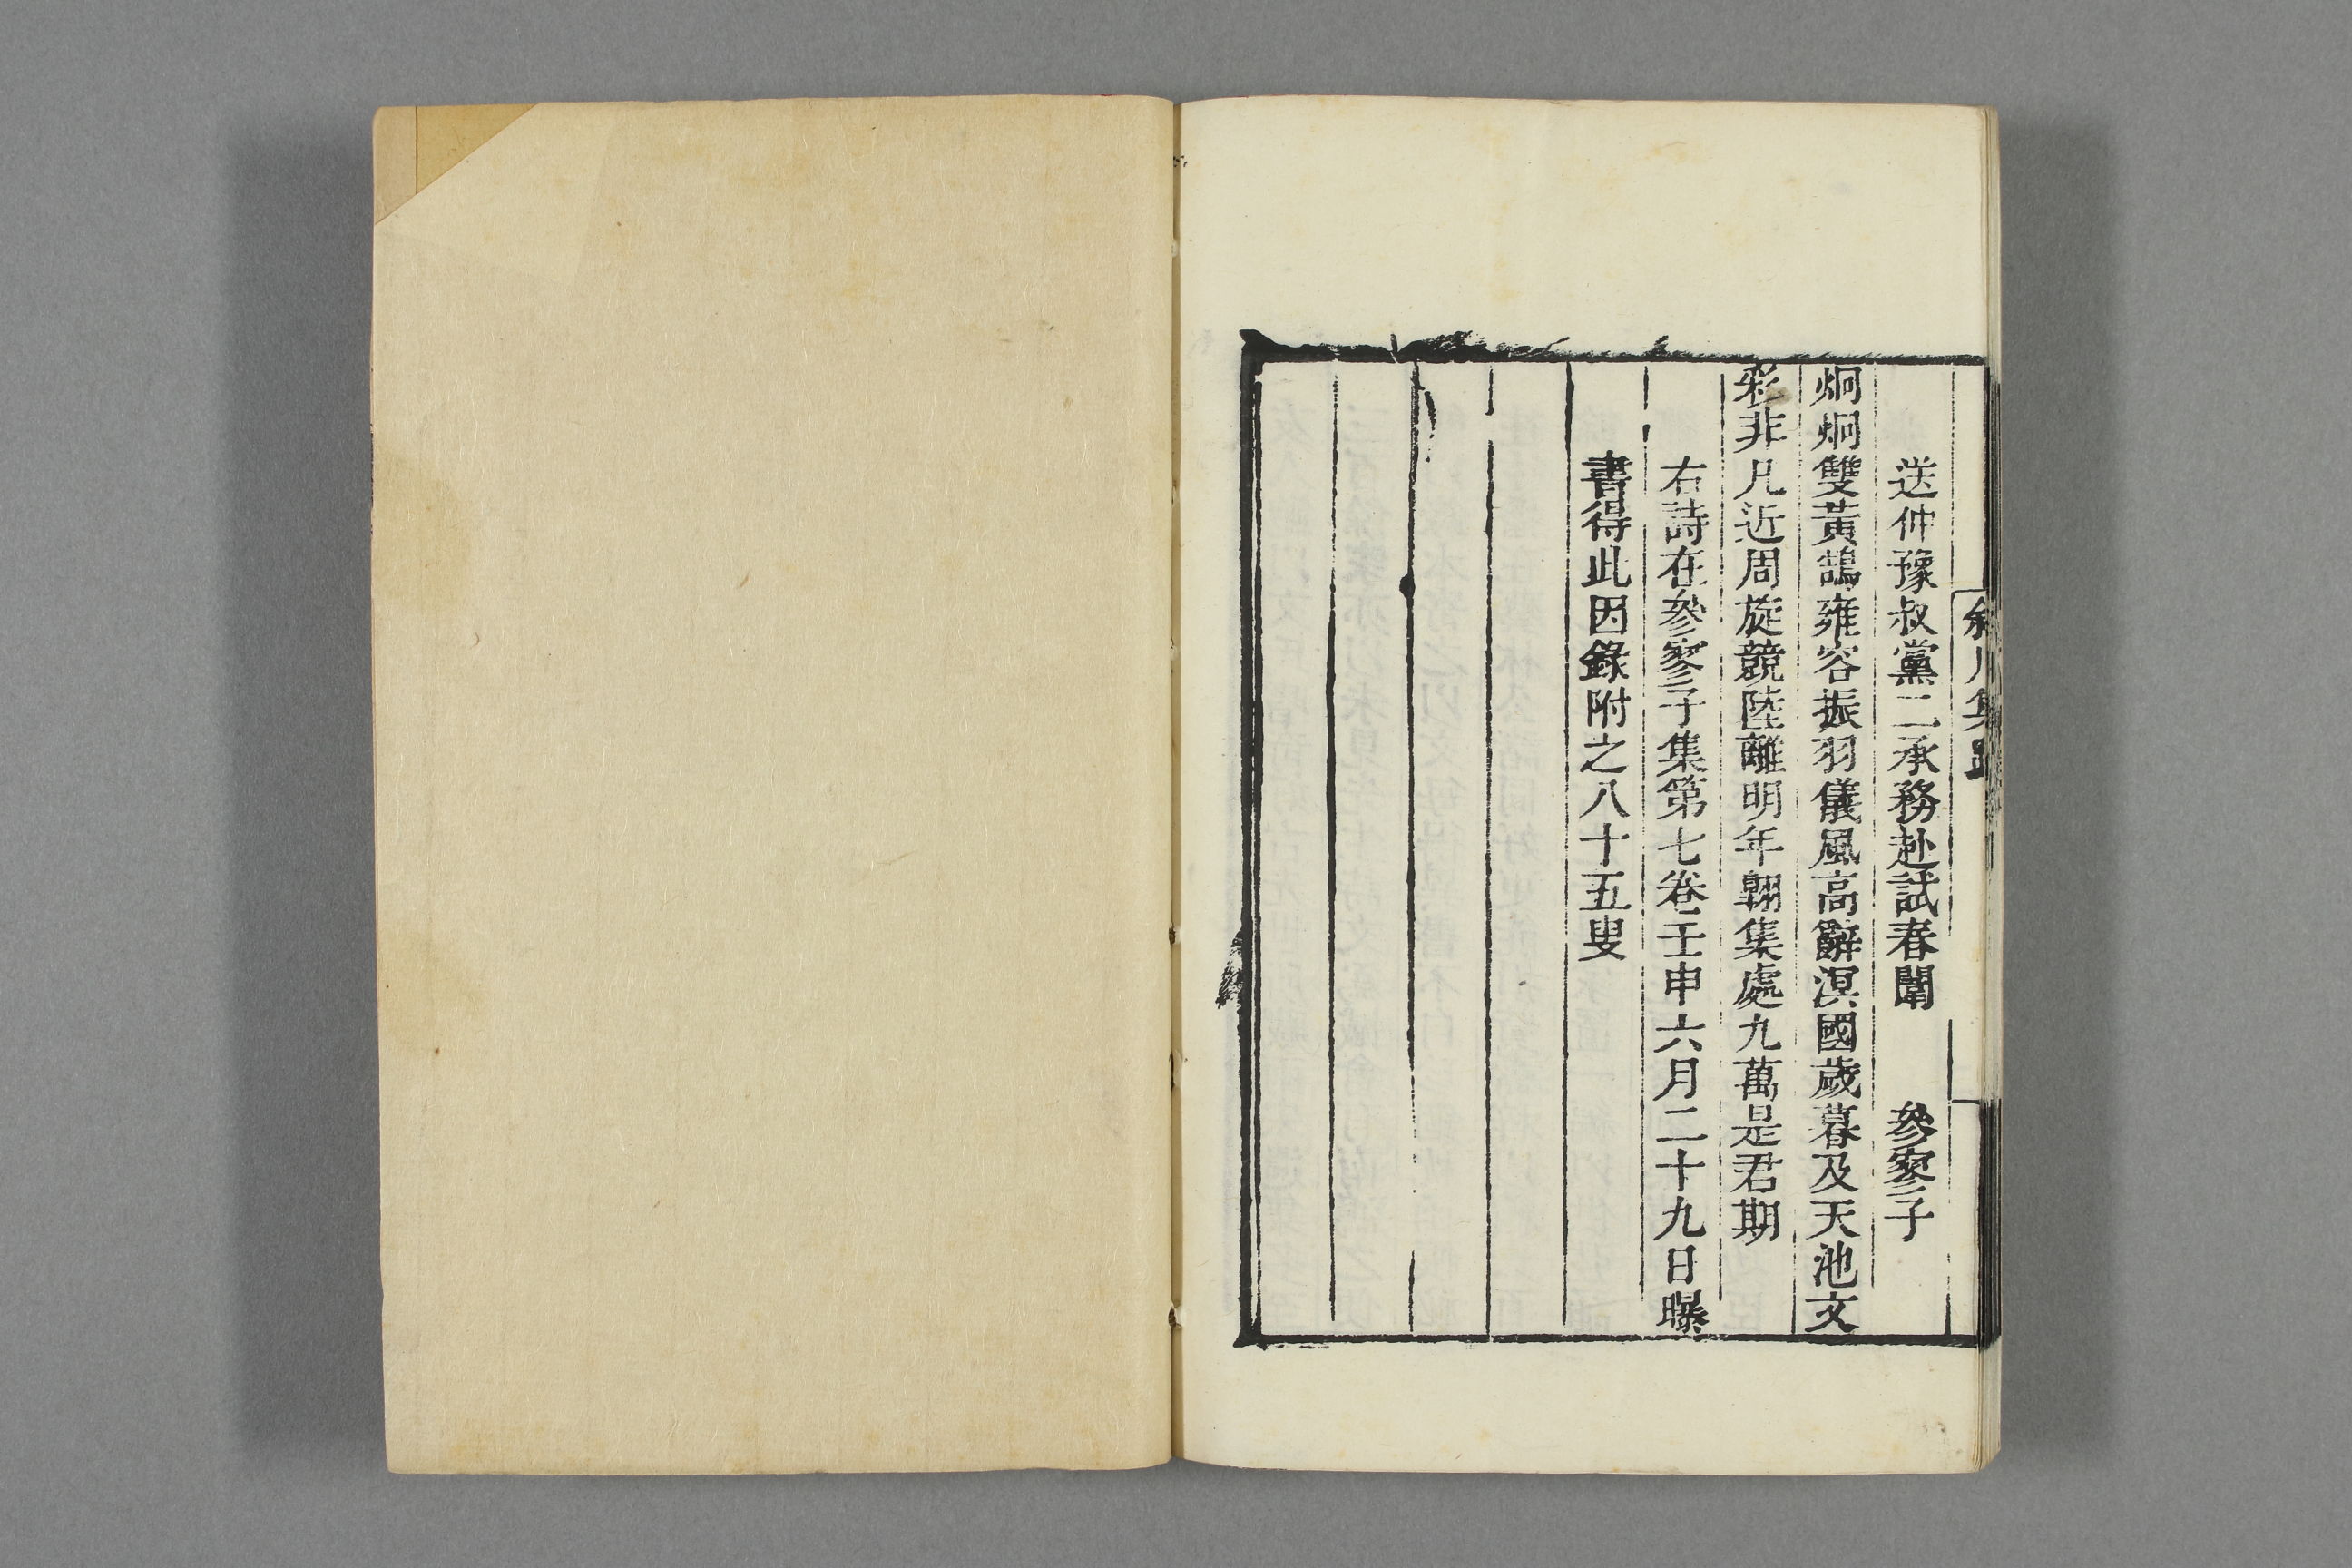 送仲豫叔黨二承務赴試春闈　參寥子
炯炯雙黃鵠雍容振羽儀風高辭溟國歲暮及天池文
彩非凡近周旋競陸離明年翺集處九萬是君期
右詩在參寥子集第七卷壬申六月二十九日曝
書得此因錄附之八十五叟
斜川集跋